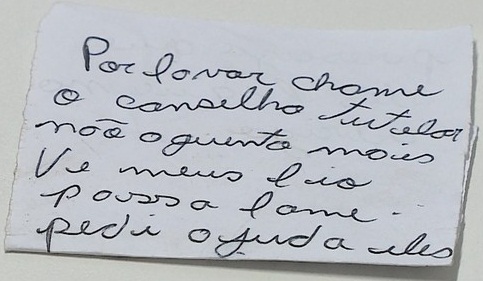 Por favar chame
o canselho tutelar
não aguento mais
Ve meus fio
passa fome.
pedi ajuda eles